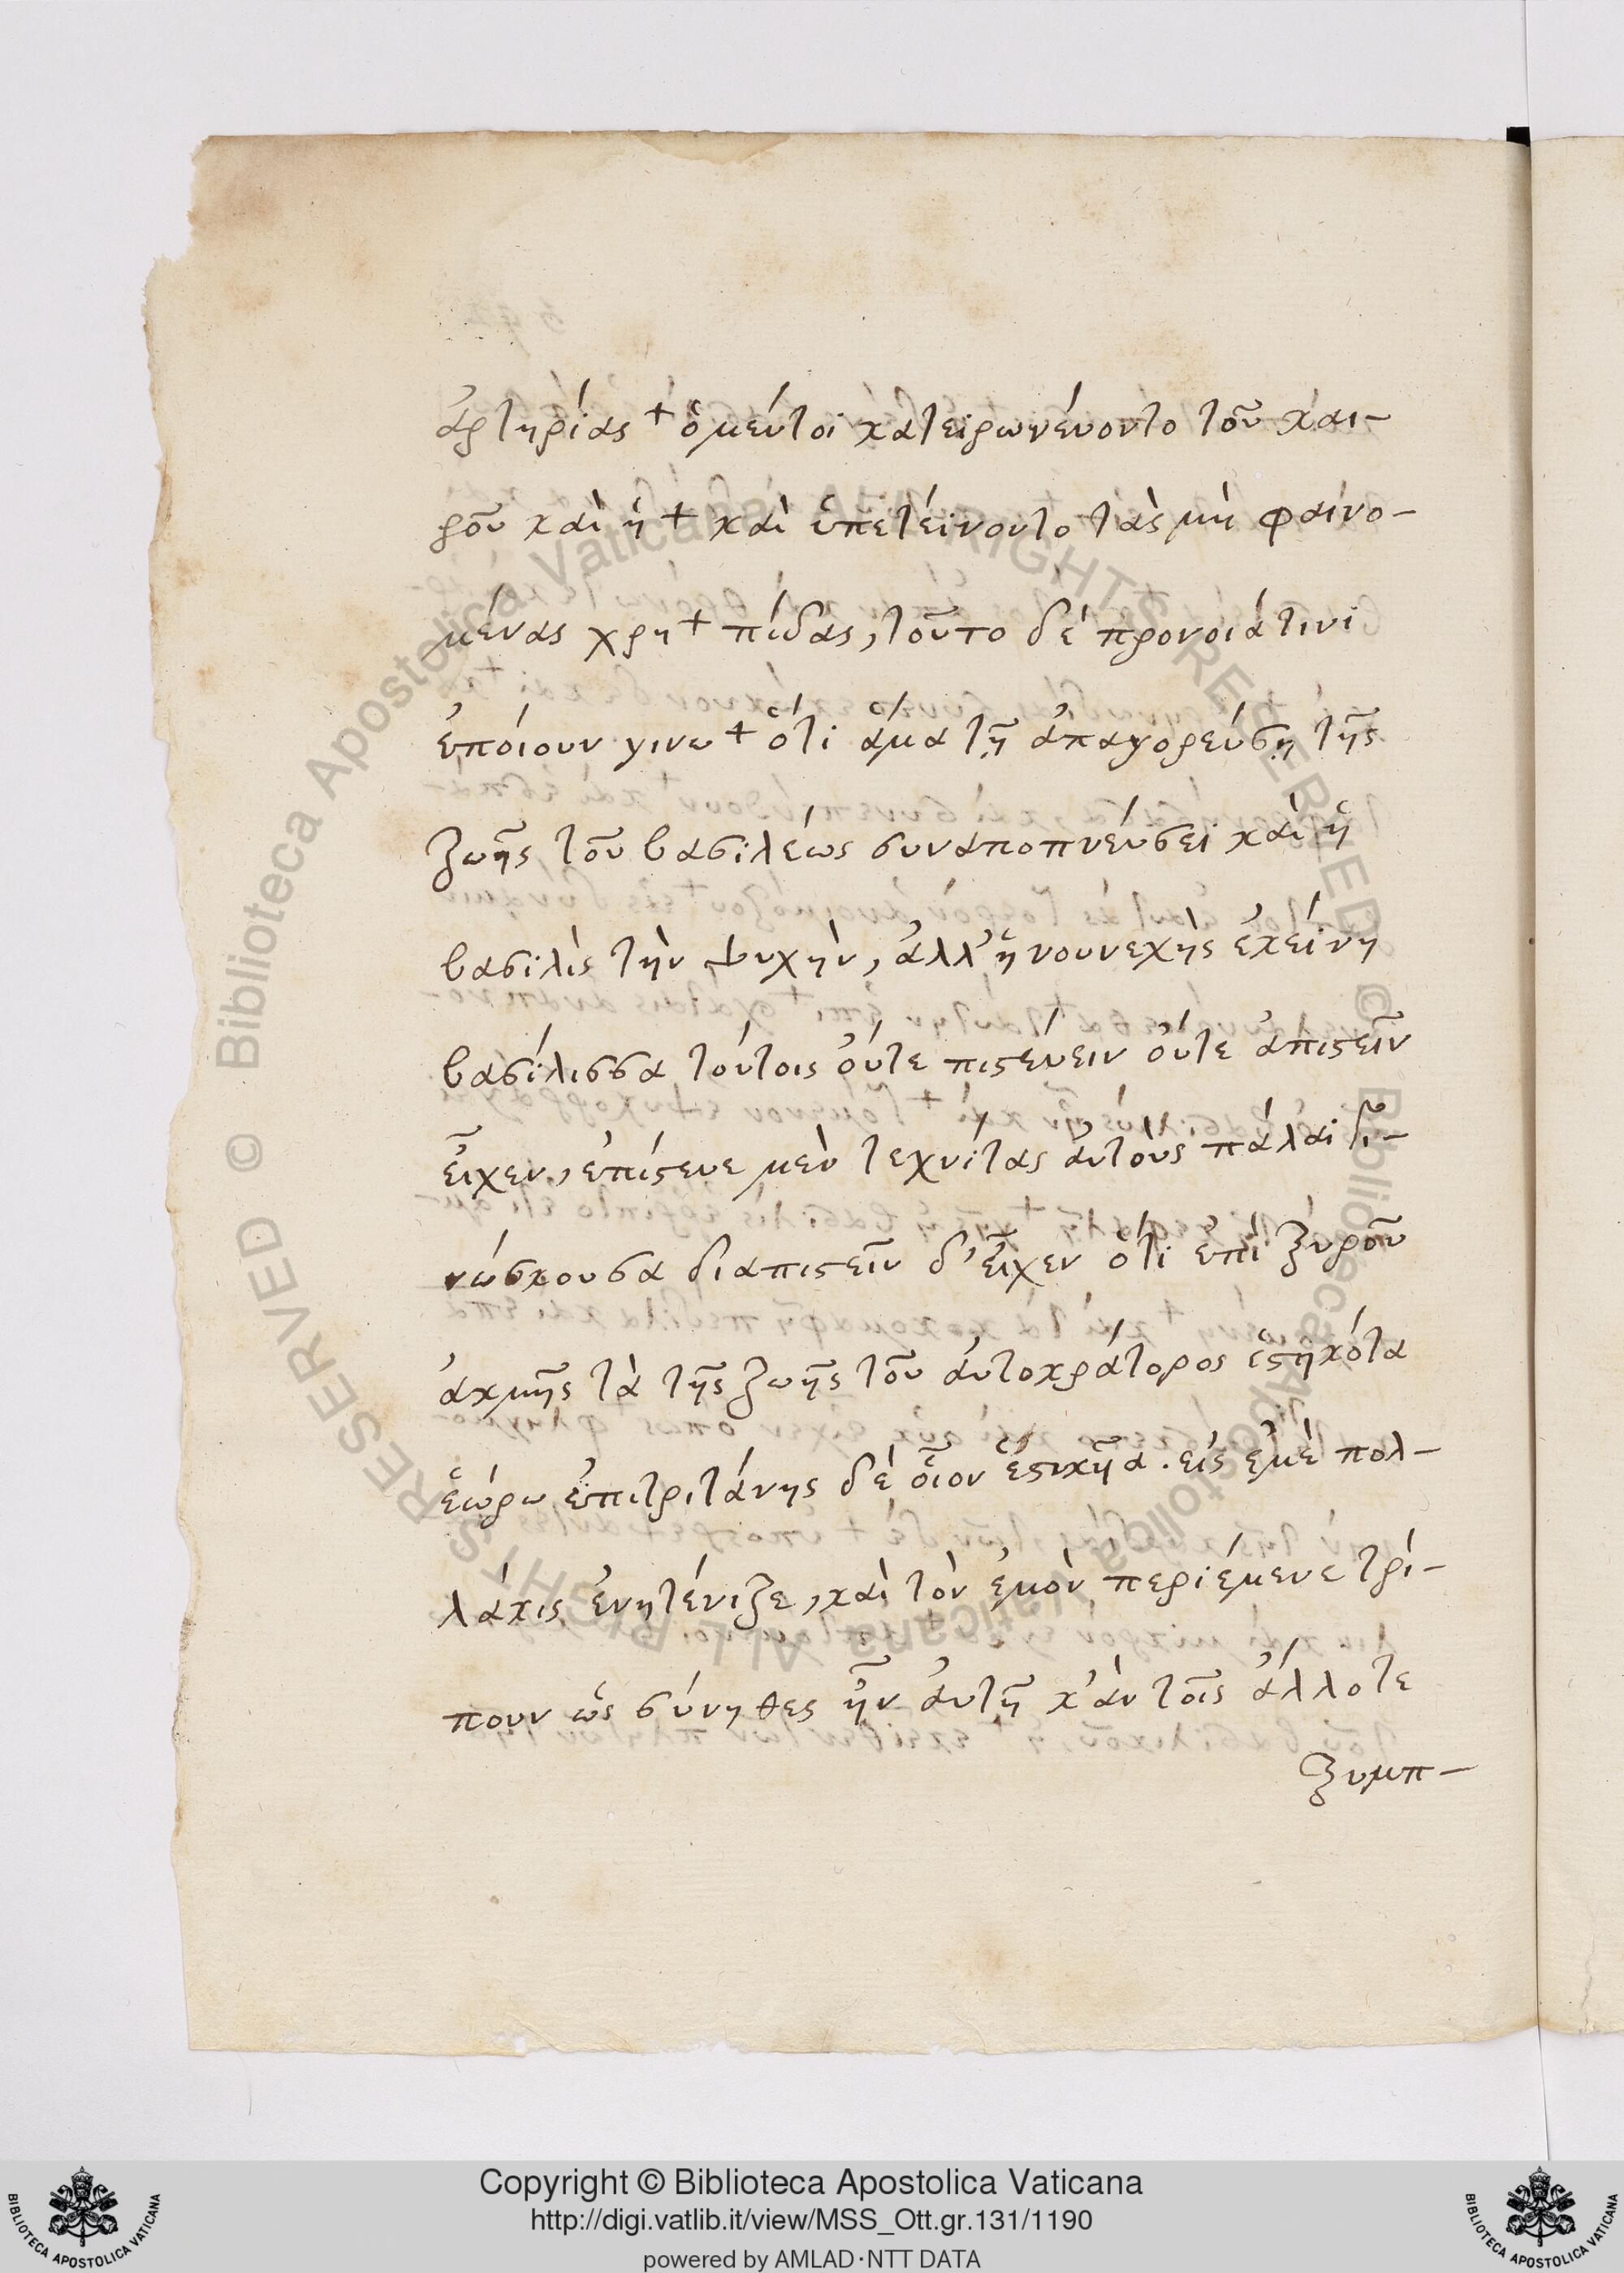 ἀρτηρίας + ὁ μέντοι κατειρωνέυοντο τοῦ και-
ροῦ καὶ ἡ + καὶ ὑπετέινοντο τὰς μὴ φαινο-
μένας χρη + πίδας, τοῦτο δὲ προνοιά τινι
ἐπόιουν γινω + ὅτι ἅμα τῇ ἀπαγορεύσῃ τῆς
ζωῆς τοῦ βασιλέως συναποπνέυσει καὶ ἡ
βασιλὶς τὴν ψυχὴν, ἀλλ' ἡ νουνεχὴς ἐκείνη
βασίλισσα τόυτοις ὄυτε πιστευειν ὄυτε ἀπιστεῖν
εἶχεν, ἐπίστευε μὲν τεχνίτας ἀυτὸυς πάλαι γι-
νώσκουσα διαπιστεῖν δ' εἶχεν ὅτι ἐπὶ ξυροῦ
ἀκμῆς τὰ τῆς ζωῆς τοῦ ἀυτοκράτορος ἑστηκότα
ἑώρω ἐπιτριτάνης δὲ οἷον ἑστικῆα. εἰς ἐμὲ πολ-
λάκις ἐνητένιζε, καὶ τὸν ἐμὸν περιέμενε τρί-
πουν ὡς σύνηθες ἦν ἀυτῇ κ'ἀν τοῖς ἄλλοτε
ξυμπ-
Copyright © Biblioteca Apostolica Vaticana
http://digi.vatlib.it/view/MSS_Ott.gr.131/1190
powered by AMLAD·NTT DATA
BIBLIOTECA APOSTOLICA VATICANA
BIBLIOTECA APOSTOLICA VATICANA
© Biblioteca Apostolica Vaticana ALL RIGHTS RESERVED
© Biblioteca Apostolica Vaticana ALL RIGHTS RESERVED